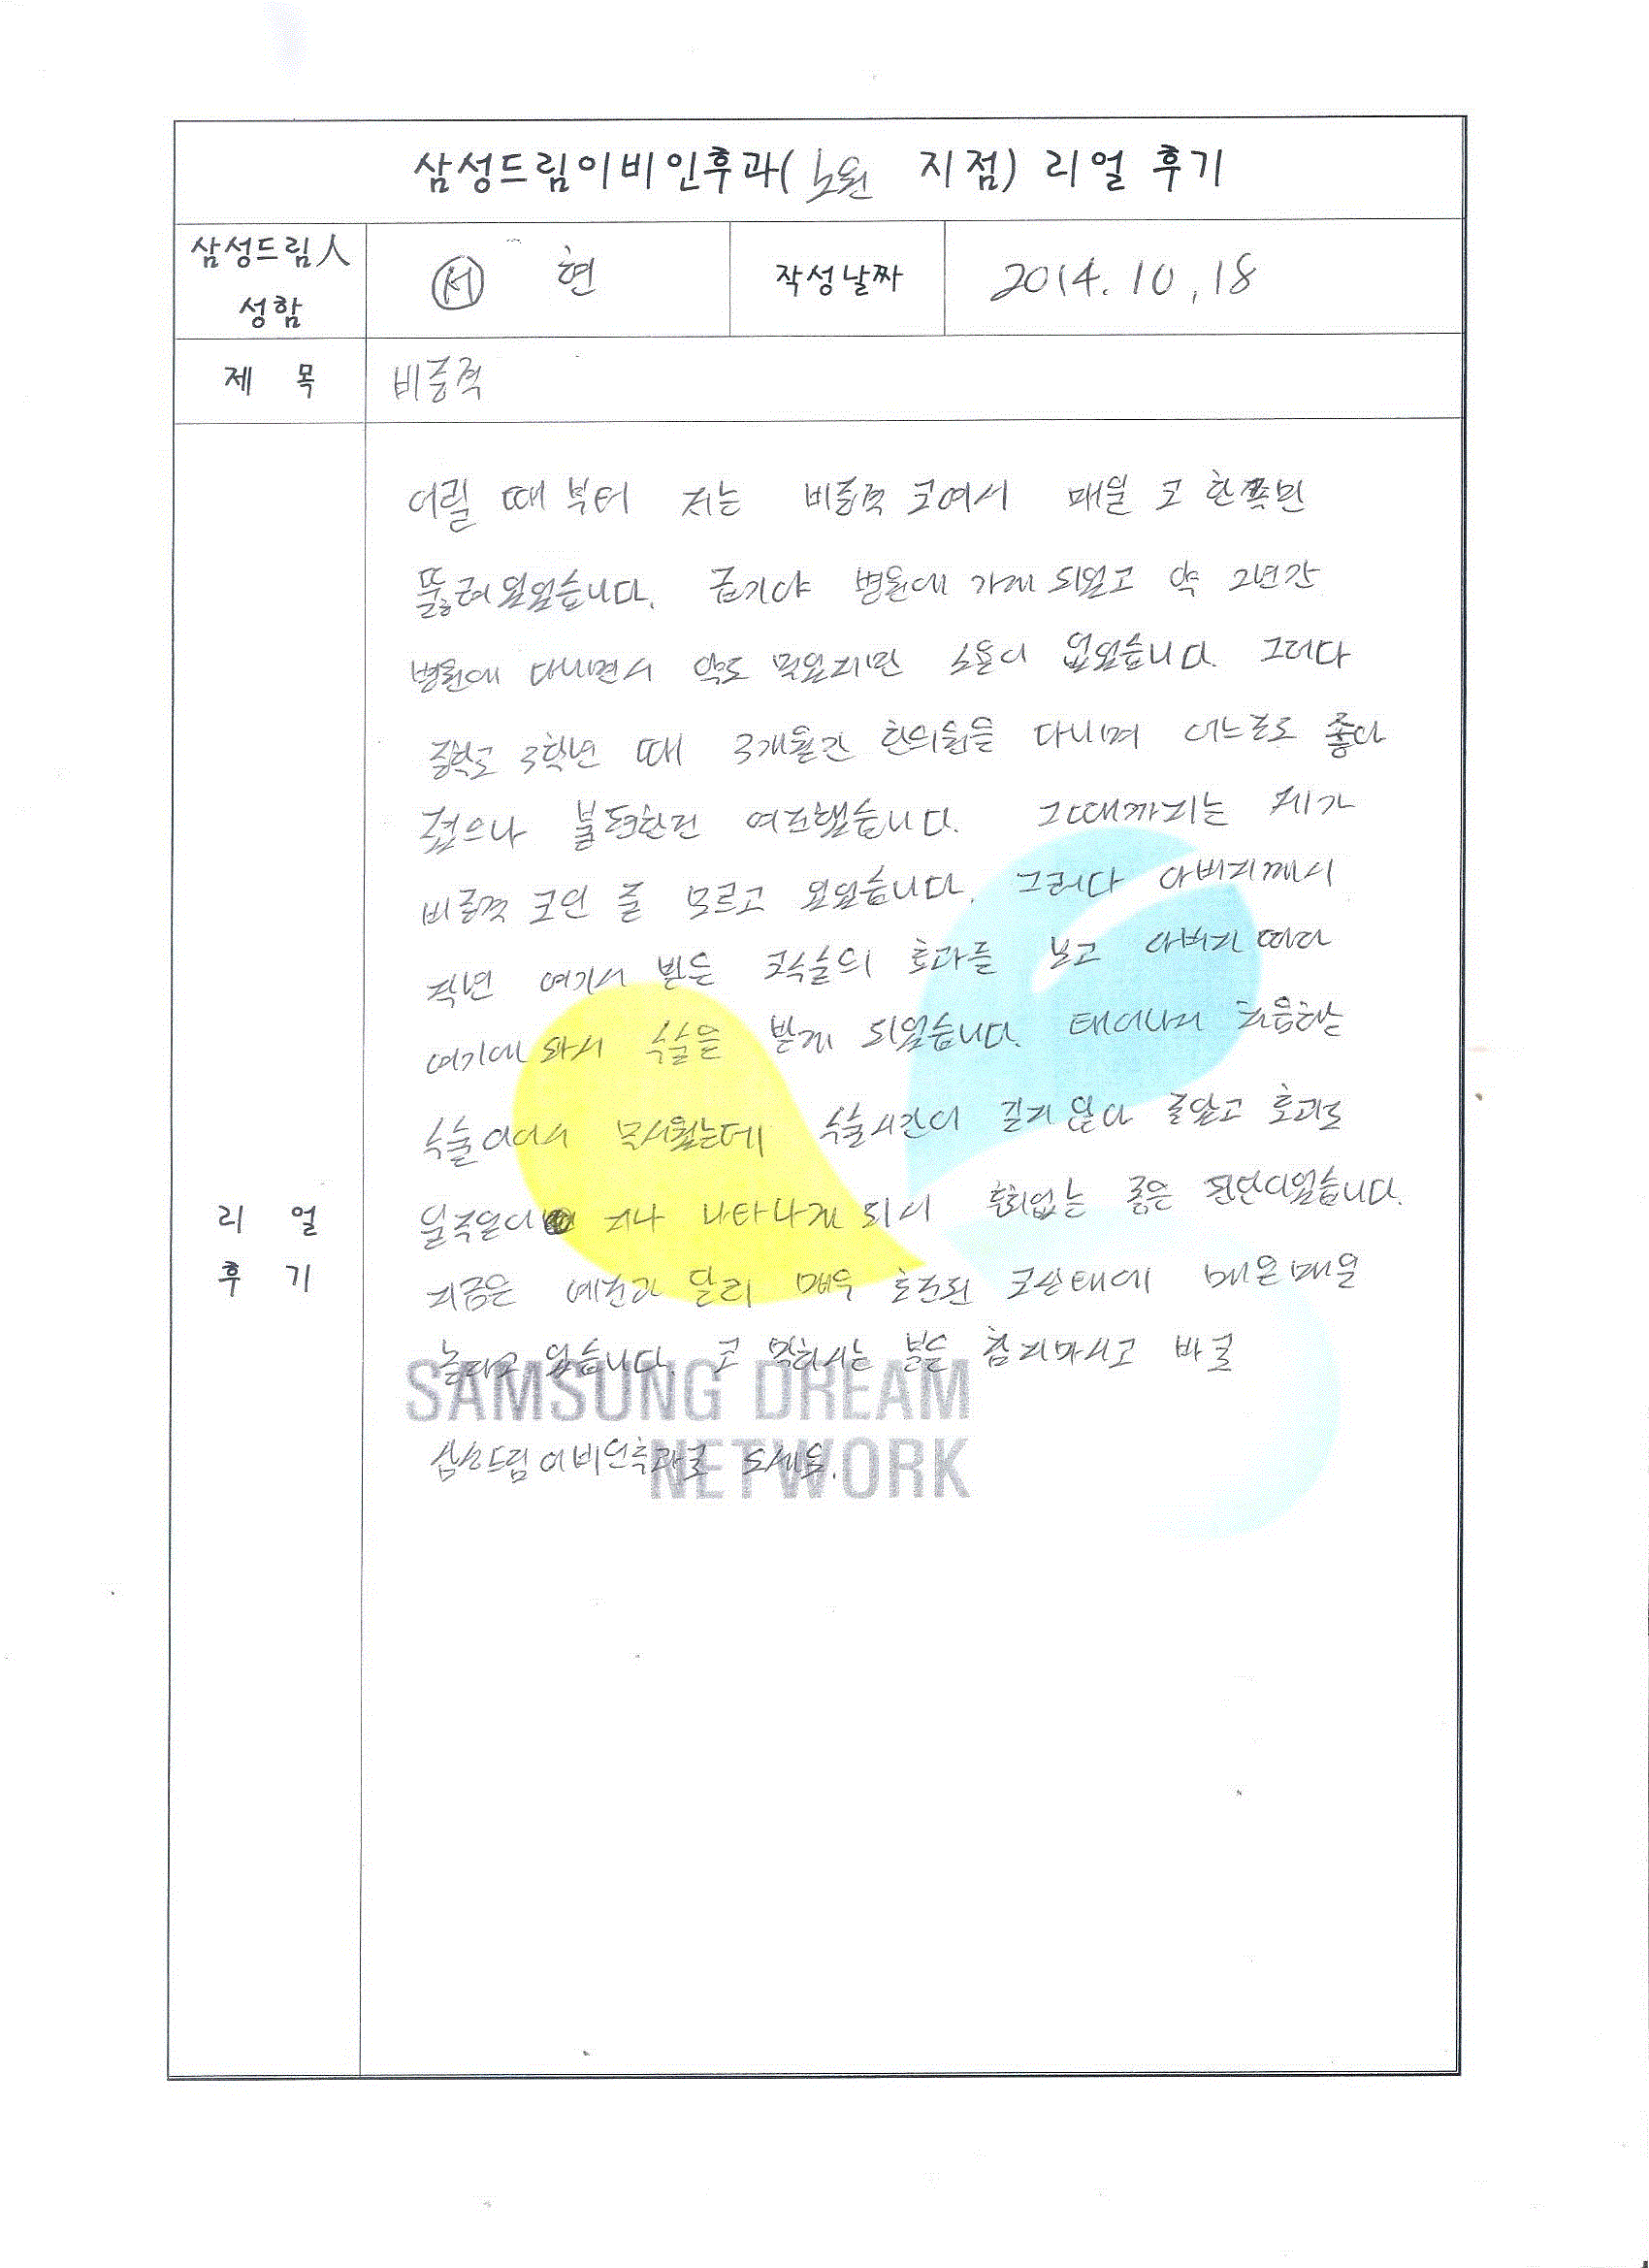 삼성드림이비인후과(노원 지점) 리얼 후기
삼성드림人 성함
서 현
작성날짜
2014. 10. 18
제 목
비중격
리 얼 후 기
어릴 때부터 저는 비중격 코여서 매일 코 한쪽만
뚫려있었습니다. 급기야 병원에 가게 되었고 약 2년간
병원에 다니면서 약도 먹었지만 소용이 없었습니다. 그러다
중학교 3학년 때 3개월간 한의원을 다니며 어느정도 좋아
졌으나 불편한건 여전했습니다. 그때까지는 제가
비중격 코인 줄 모르고 있었습니다. 그러다 아버지께서
작년 여기서 받은 코수술의 효과를 보고 아버지 따라
여기에 와서 수술을 받게 되었습니다. 태어나서 처음하는
수술이어서 무서웠는데 수술시간이 길지 않아 좋았고 효과도
일주일이 지나 나타나게 되서 후회없는 좋은 판단이었습니다.
지금은 예전과 달리 매우 호전된 코상태에 매일매일
놀라고 있습니다. 코 막히시는 분들 참지마시고 바로
삼성드림이비인후과로 오세요.
SAMSUNG DREAM
NETWORK